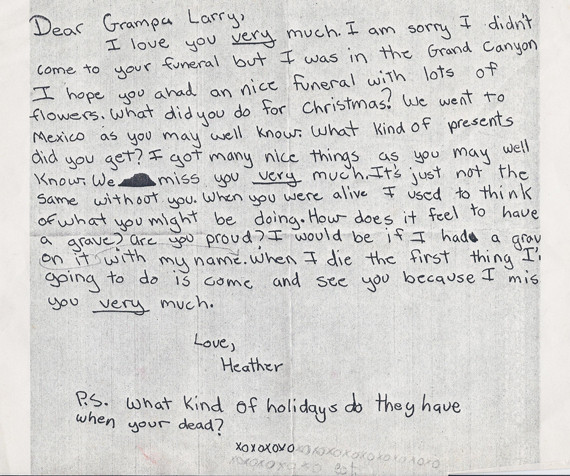 Dear Grampa Larry,
I love you very much. I am sorry I didn't
come to your funeral but I was in the Grand Canyon
I hope you ahad an nice funeral with lots of
flowers. What did you do for Christmas? We went to
Mexico as you may well know. What kind of presents
did you get? I got many nice things as you may well
know. We miss you very much. It's just not the
same without you. When you were alive I used to think
of what you might be doing. How does it feel to have
a grave? are you proud? I would be if I had a grav
on it with my name. When I die the first thing I'
going to do is come and see you because I mis
you very much.
Love,
Heather
P.S. What kind of holidays do they have
when your dead?
xoxoxoxo